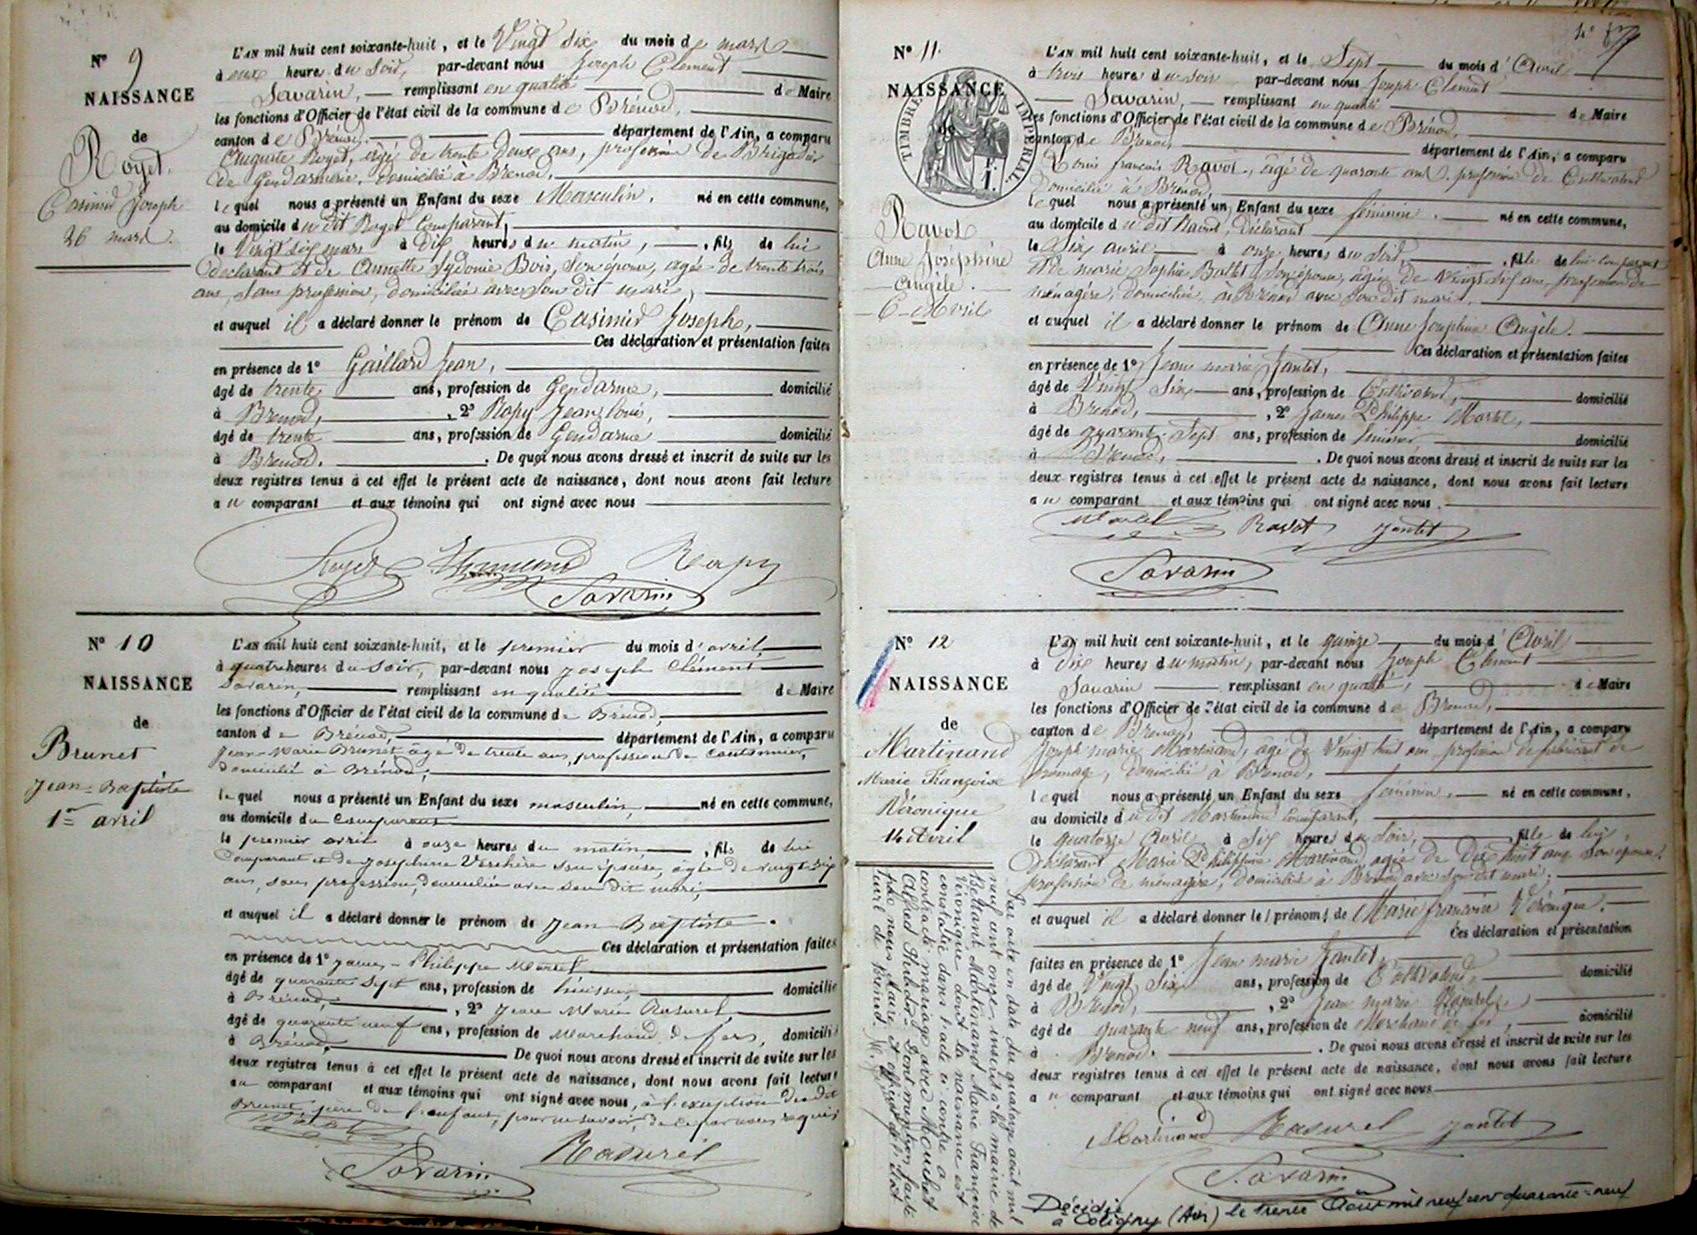 N° 9
NAISSANCE
de
Royet.
Casimir Joseph
26 mars.
L'AN mil huit cent soixante-huit, et le Vingt six du mois de mars
à onze heures du Soir, par-devant nous Joseph Clément
Savarin, remplissant en qualité de Maire
les fonctions d'Officier de l'état civil de la commune de Brénod,
canton de Brénod, département de l'Ain, a comparu
Auguste Royet, âgé de trente deux ans, profession de Brigadier
de Gendarmerie, domicilié à Brénod,
lequel nous a présenté un Enfant du sexe Masculin, né en cette commune,
au domicile du dit Royet Comparant,
le Vingt six mars à Dix heures du matin, fils de lui
déclarant et de Annette Sydonie Bois, son épouse, agée de trente trois
ans, sans profession, domiciliée avec son dit mari,
et auquel il a déclaré donner le prénom de Casimir Joseph,
Ces déclaration et présentation faites
en présence de 1° Gaillard Jean,
âgé de trente ans, profession de Gendarme, domicilié
à Brenod, 2° Rapy Jean Louis,
âgé de trente ans, profession de Gendarme domicilié
à Brenod. De quoi nous avons dressé et inscrit de suite sur les
deux registres tenus à cet effet le présent acte de naissance, dont nous avons fait lecture
au comparant et aux témoins qui ont signé avec nous
Royet Rapy
Savarin
N° 10
NAISSANCE
de
Brunet
Jean-Baptiste
1er avril
L'AN mil huit cent soixante-huit, et le premier du mois d'avril,
à quatre heures du Soir, par-devant nous Joseph Clément
Savarin, remplissant en qualité de Maire
les fonctions d'Officier de l'état civil de la commune de Brénod,
canton de Brénod, département de l'Ain, a comparu
Jean-Marie Brunet âgé de trente ans, profession de cantonnier,
domicilié à Brénod,
lequel nous a présenté un Enfant du sexe masculin, né en cette commune,
au domicile du comparant
le premier avril à onze heures du matin, fils de lui
comparant et de Josephine Verchère son épouse, âgée de vingt-six
ans, sans profession, domiciliée avec son dit mari,
et auquel il a déclaré donner le prénom de Jean Baptiste.
Ces déclaration et présentation faites
en présence de 1° James-Philippe Martel
âgé de quarante sept ans, profession de huissier domicilié
à Brénod, 2° Jean Marie Rasurel,
âgé de quarante neuf ans, profession de Marchand de fers, domicilié
à Brénod, De quoi nous avons dressé et inscrit de suite sur les
deux registres tenus à cet effet le présent acte de naissance, dont nous avons fait lecture
au comparant et aux témoins qui ont signé avec nous, à l'exception du dit
Brunet, père de l'enfant, pour ne savoir, de ce par nous requis
Rasurel
Savarin
N° 11.
NAISSANCE
de
TIMBRE IMPÉRIAL
Ravot
Anne Joséphine
Angèle.
6 Avril
L'AN mil huit cent soixante-huit, et le Sept du mois d'Avril
à trois heures du soir par-devant nous Joseph Clément
Savarin, remplissant en qualité de Maire
les fonctions d'Officier de l'état civil de la commune de Brénod,
canton de Brenod, département de l'Ain, a comparu
Louis français Ravot, âgé de quarante ans, profession de Cultivateur
domicilié à Brénod
lequel nous a présenté un Enfant du sexe féminin. né en cette commune,
au domicile du dit Ravot, Déclarant
le Six avril à onze heures du soir, fille de lui comparant
et de marie Sophie Ballet son épouse, agée de vingt six ans, profession de
ménagère, domiciliée à Brénod avec son dit mari.
et auquel il a déclaré donner le prénom de Anne Joséphine Angèle.
Ces déclaration et présentation faites
en présence de 1° Jean marie Jantet,
âgé de Vingt Six ans, profession de Cultivateur, domicilié
à Brénod, 2° James Philippe Martel,
âgé de quarante-Sept ans, profession de huissier domicilié
à Brenod, De quoi nous avons dressé et inscrit de suite sur les
deux registres tenus à cet effet le présent acte de naissance, dont nous avons fait lecture
au comparant et aux témoins qui ont signé avec nous.
Martel Ravot Jantet
Savarin
N° 12
NAISSANCE
de
Martinand
Marie Françoise
Véronique
14 Avril
L'AN mil huit cent soixante-huit, et le quinze du mois d'Avril
à dix heures du matin, par-devant nous Joseph Clément
Savarin remplissant en qualité, de Maire
les fonctions d'Officier de l'état civil de la commune de Brenod,
canton de Brénod, département de l'Ain, a comparu
Joseph marie Martinand, âgé de Vingt huit ans profession de fabricant de
fromage, domicilié à Brenod,
lequel nous a présenté un Enfant du sexe féminin. né en cette commune,
au domicile du dit Martinand Comparant,
le quatorze Avril à Six heures du Soir, fille de lui,
Déclarant, Marie Philippine Martinand, agée de Dix huit ans son épouse,
profession de ménagère, domiciliée à Brenod avec son dit mari.
et auquel il a déclaré donner les prénoms de Marie françoise Véronique.
Ces déclaration et présentation
faites en présence de 1° Jean marie Jantet,
âgé de Vingt Six ans, profession de Cultivateur, domicilié
à Brenod, 2° Jean marie Rasurel,
âgé de quarante neuf ans, profession de Marchand de fer, domicilié
à Brenod. De quoi nous avons dressé et inscrit de suite sur les
deux registres tenus à cet effet le présent acte de naissance, dont nous avons fait lecture
au comparant et aux témoins qui ont signé avec nous
Martinand Rasurel Jantet
Savarin
Par acte en date du quatorze août mil
neuf cent onze, inscrit à la mairie de
Martinand Marie Françoise
Véronique dont la naissance est
constatée dans l'acte ci-contre a
contracté mariage avec Mouchet
Alfred Théodore. Dont mention faite
par nous Maire et officier de l'état
civil de Brénod.
Décidée
à Coligny (Ain) le trente Août mil neuf cent quarante-neuf